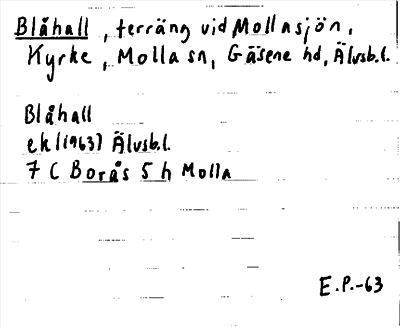 Blåhall, terräng vid Mollasjön,
Kyrke, Molla sn, Gäsene hd, Älvsb.l.
Blåhall
ek (1963) Älvsb.l.
7 C Borås 5 h Molla
E.P.-63